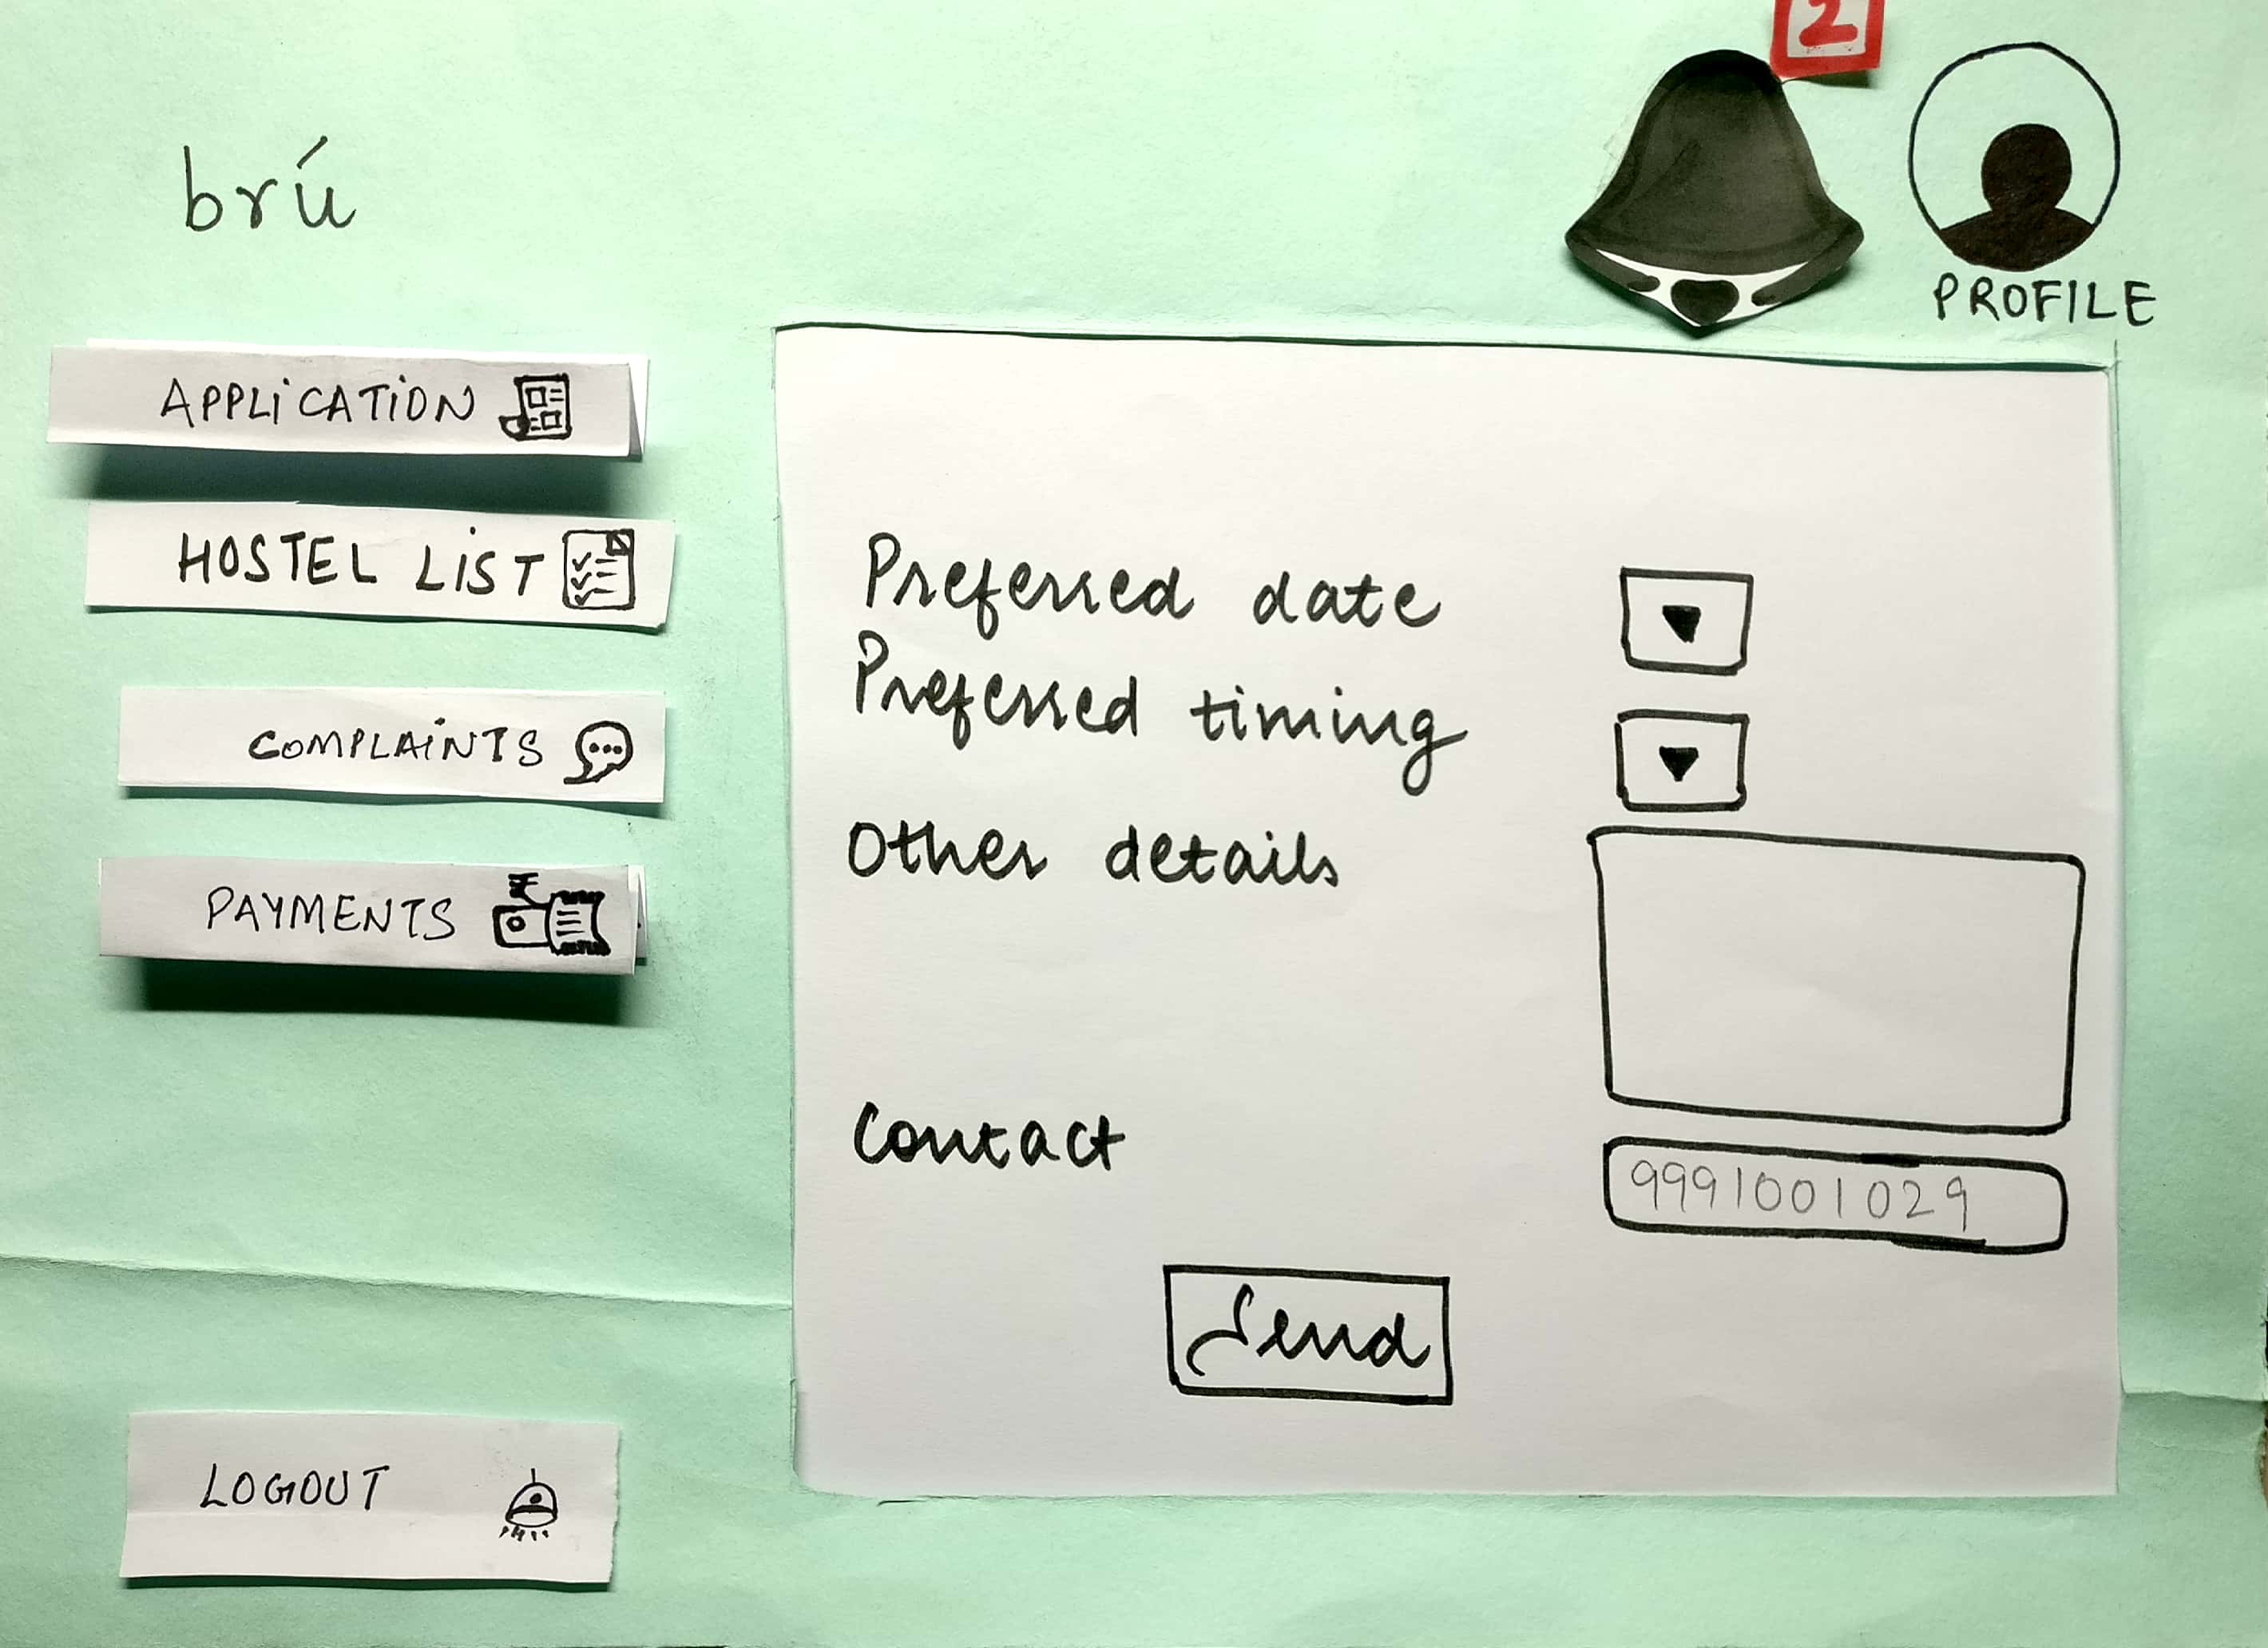 2
brú
PROFILE
APPLiCATiON
HOSTEL LiST
COMPLAiNTS
PAYMENTS
₹
Preferred date
Preferred timing
Other details
Contact
9991001029
Send
LOGOUT